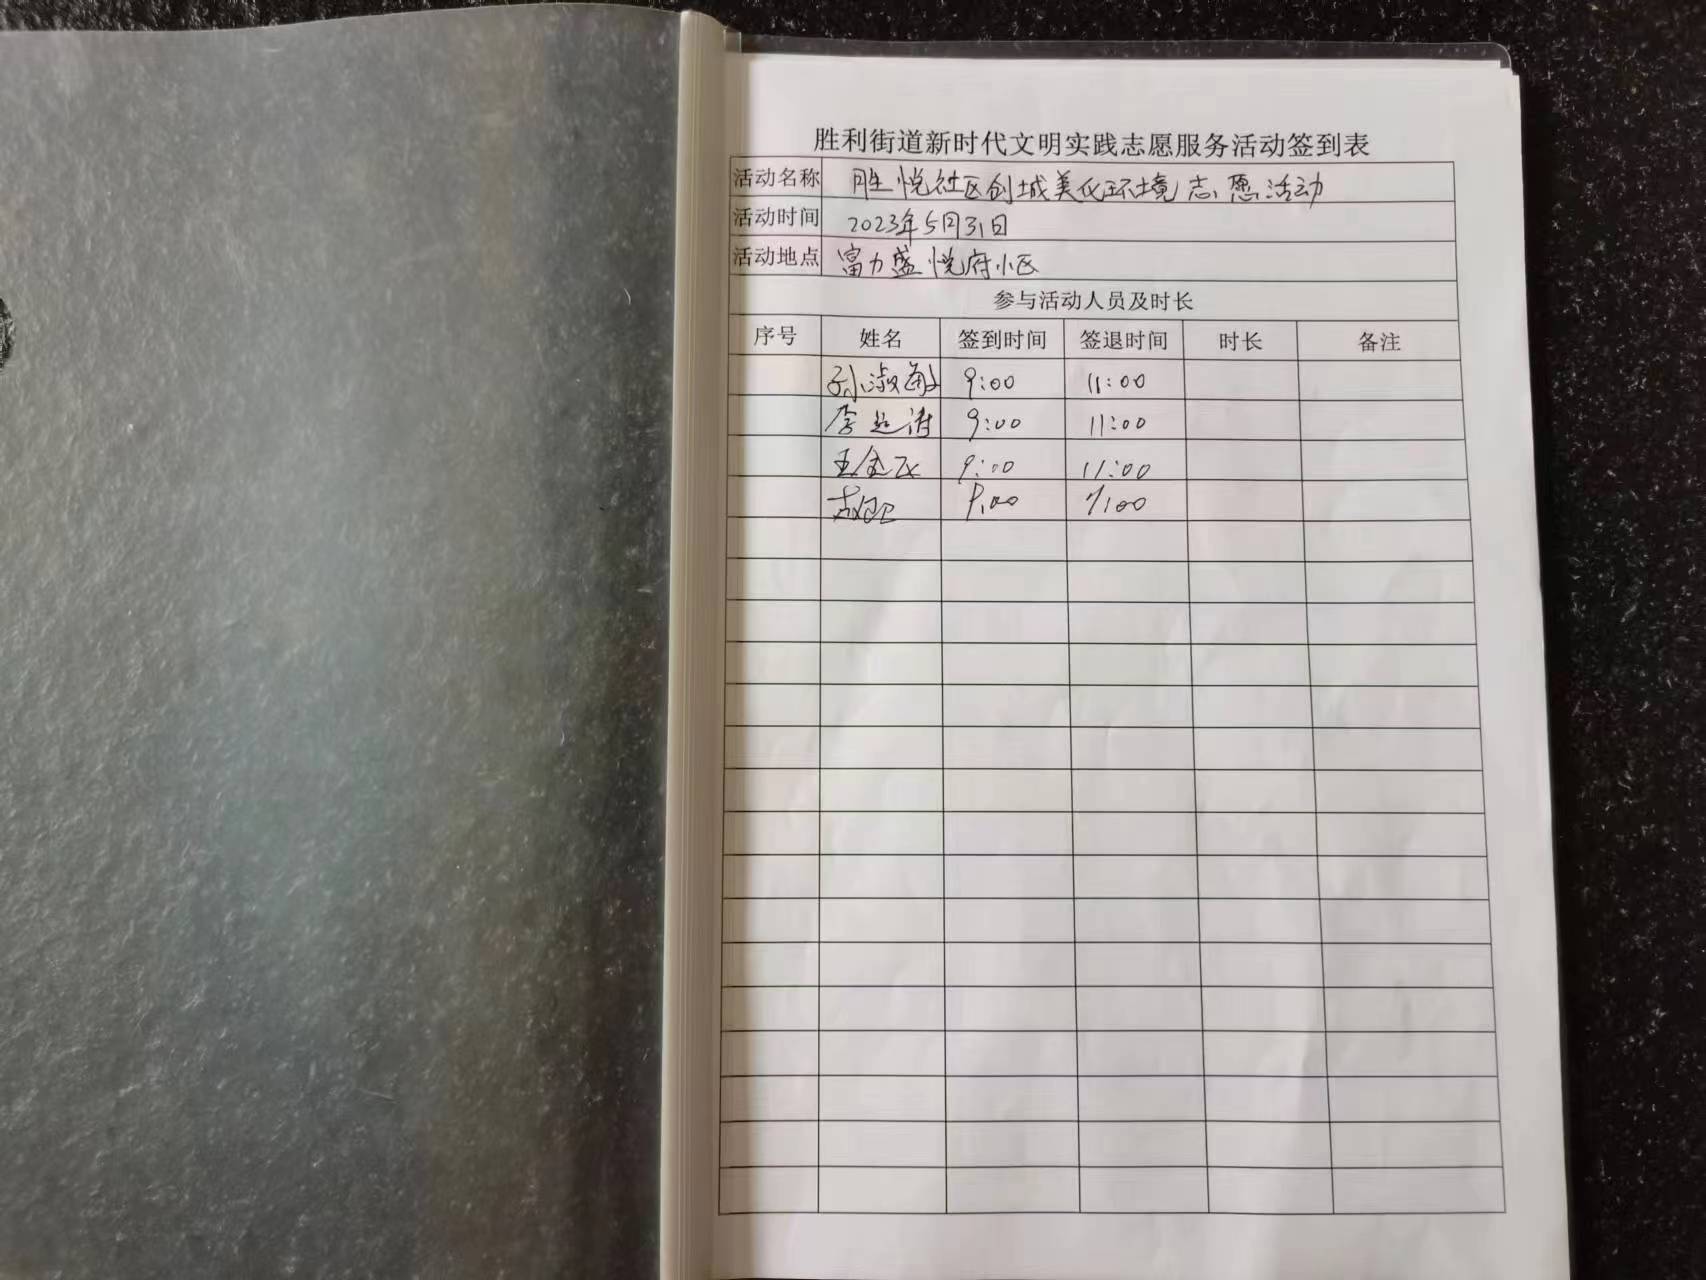 胜利街道新时代文明实践志愿服务活动签到表
活动名称 胜悦社区创城美化环境志愿活动
活动时间 2023年5月31日
活动地点 富力盛悦府小区
参与活动人员及时长
序号 姓名 签到时间 签退时间 时长 备注
孙淑敏 9:00 11:00
李 9:00 11:00
王金 9:00 11:00
9:00 11:00